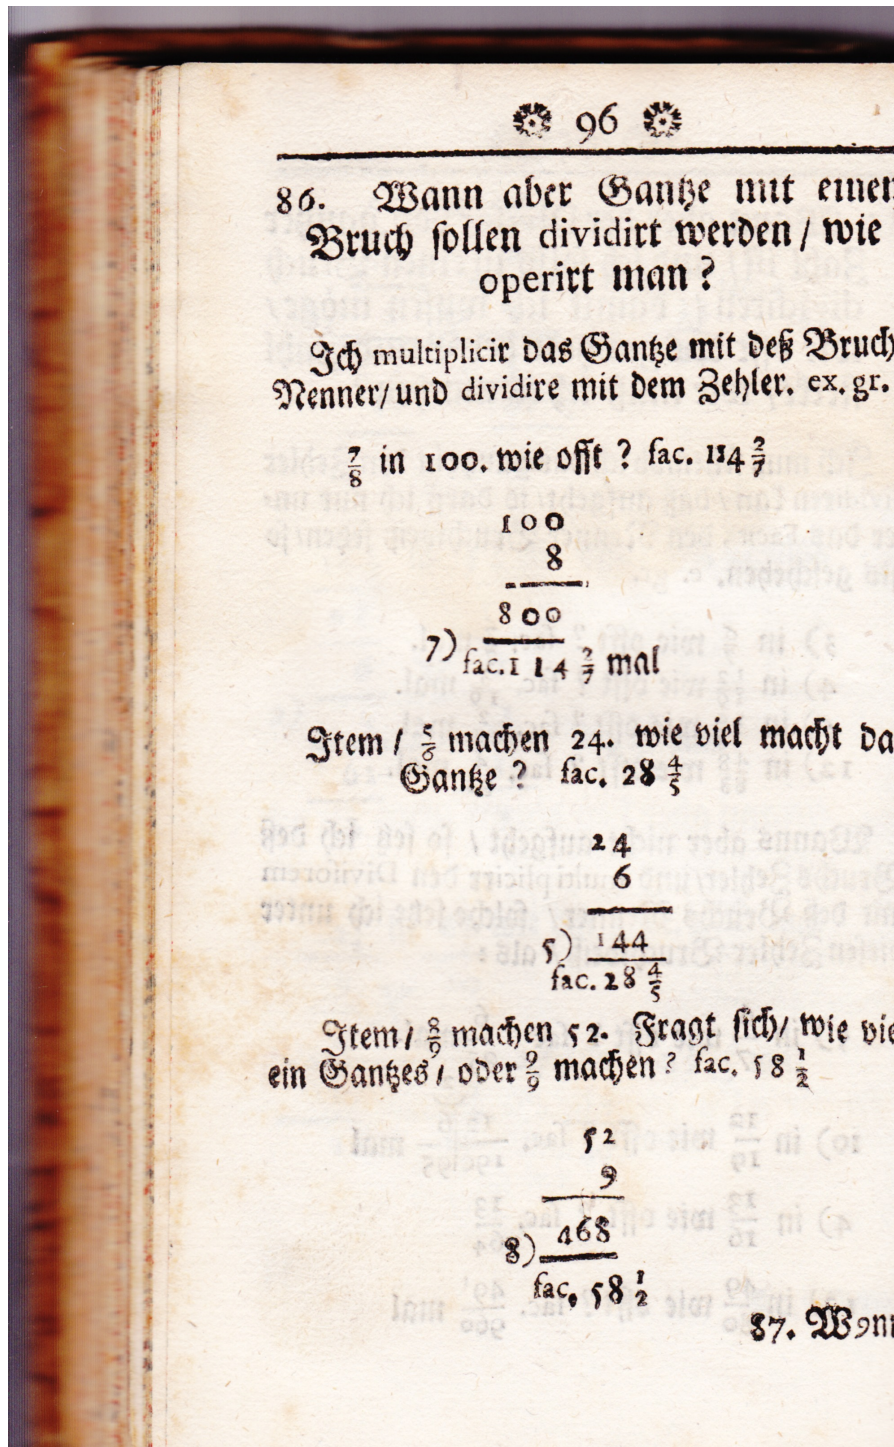 96
86. Wann aber Gantze mit einen
Bruch sollen dividirt werden / wie
operirt man ?
Ich multiplicir das Gantze mit deß Bruch
Nenner / und dividire mit dem Zehler. ex. gr.
7/8 in 100. wie offt ? fac. 114 2/7
100
8
800
7)
fac. 114 2/7 mal
Item / 5/6 machen 24. wie viel macht da
Gantze ? fac. 28 4/5
24
6
5) 144
fac. 28 4/5
Item / 8/9 machen 52. Fragt sich / wie vie
ein Gantzes / oder 9/9 machen ? fac. 58 1/2
52
9
8) 468
fac. 58 1/2
87. Wann